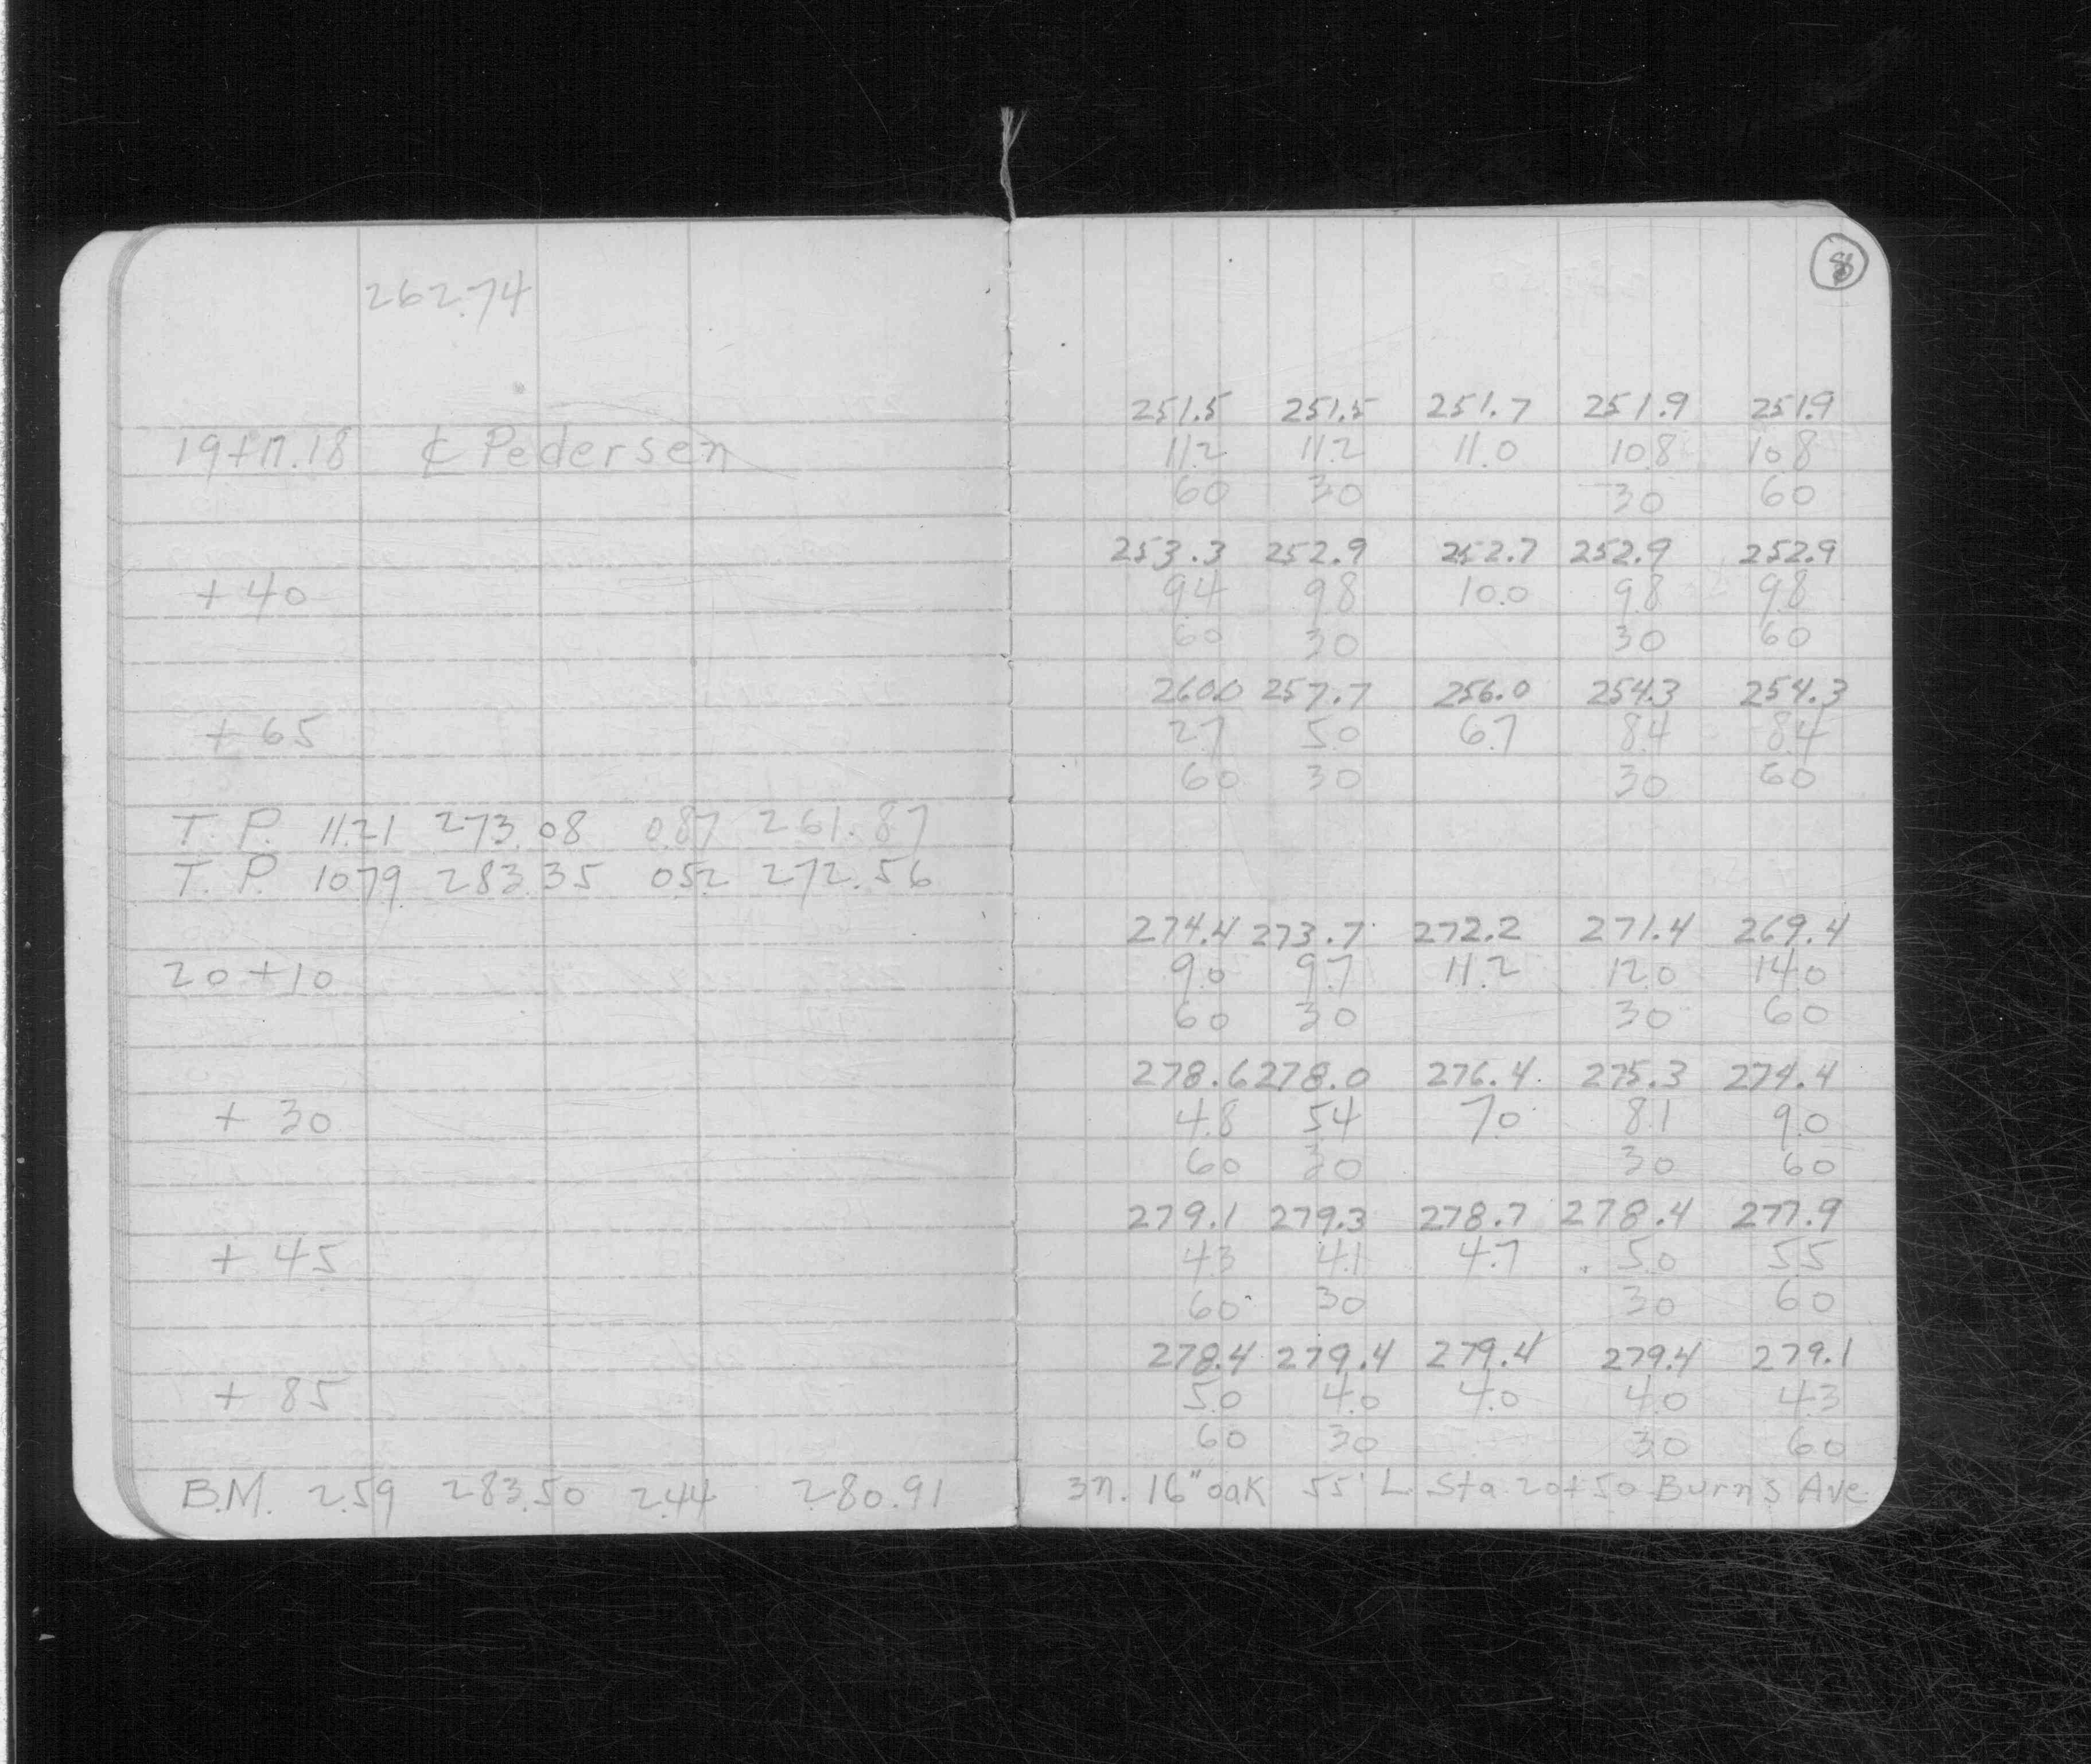 262.74
8
251.5 251.5 251.7 251.9 251.9
19+17.18 ₵ Pedersen 11.2 11.2 11.0 10.8 10.8
60 30 30 60
253.3 252.9 252.7 252.9 252.9
+ 40 9.4 9.8 10.0 9.8 9.8
60 30 30 60
260.0 257.7 256.0 254.3 254.3
+ 65 2.7 5.0 6.7 8.4 8.4
60 30 30 60
T. P. 11.21 273.08 0.87 261.87
T. P. 10.79 283.35 0.52 272.56
274.4 273.7 272.2 271.4 269.4
20 + 10 9.0 9.7 11.2 12.0 14.0
60 30 30 60
278.6 278.0 276.4 275.3 274.4
+ 30 4.8 5.4 7.0 8.1 9.0
60 30 30 60
279.1 279.3 278.7 278.4 277.9
+ 45 4.3 4.1 4.7 5.0 5.5
60 30 30 60
278.4 279.4 279.4 279.4 279.1
+ 85 5.0 4.0 4.0 4.0 4.3
60 30 30 60
B.M. 2.59 283.50 2.44 280.91 3n. 16" oak 55' L. Sta 20+50 Burns Ave.